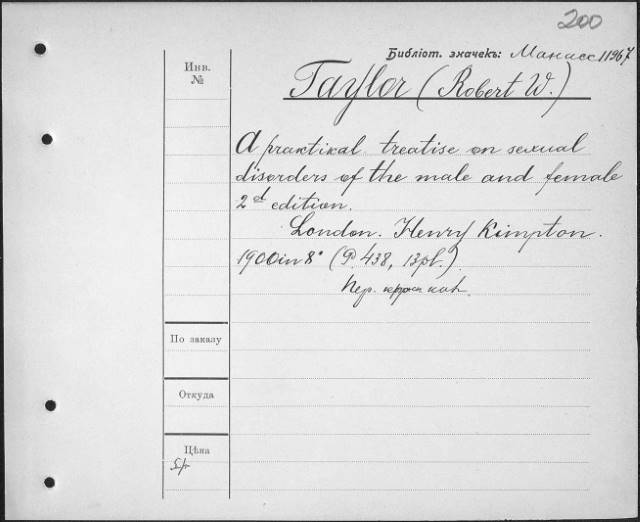 200
Библіот. значекъ: Манасс 11967
Инв.
№
Taylor (Robert W.)
A praktikal treatise on sexual
disorders of the male and female
2d edition.
London. Henry Kimpton.
1900 in 8° (P. 438, 13pl.)
Пер.
По заказу
Откуда
Цѣна
5р